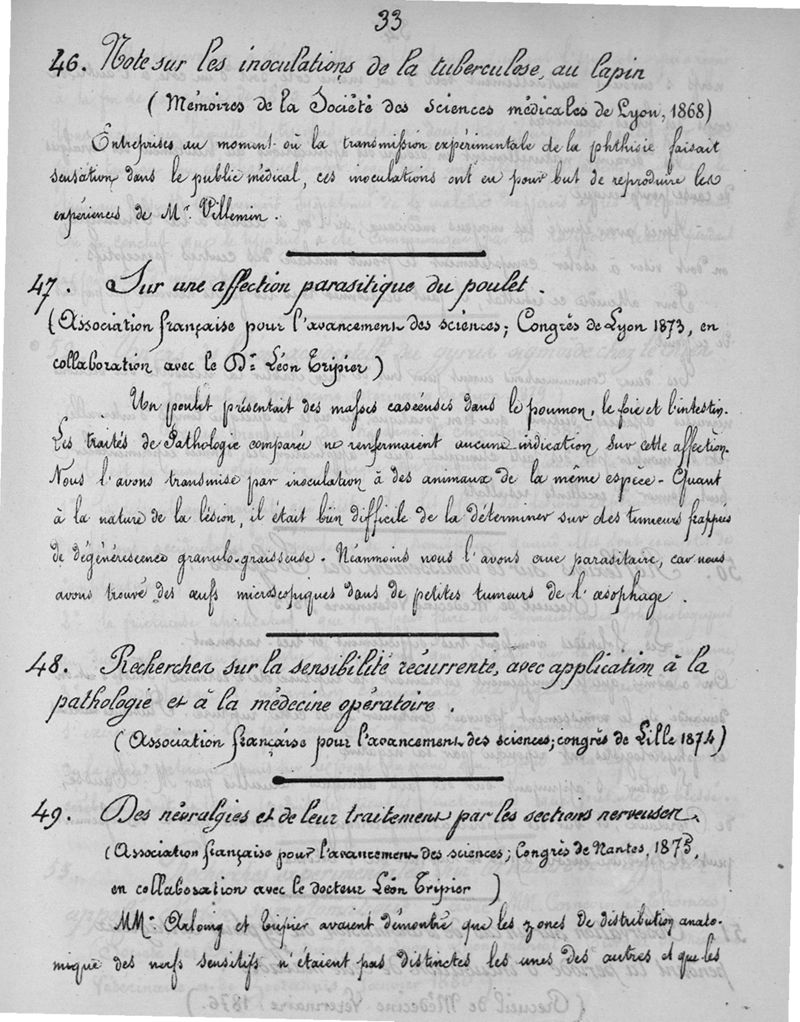 33
46. Note sur les inoculations de la tuberculose, au lapin
(Mémoires de la Société des sciences médicales de Lyon, 1868)
Entreprises au moment où la transmission expérimentale de la phthisie faisait
sensation dans le public médical, ces inoculations ont eu pour but de reproduire les
expériences de Mr. Villemin.
47. Sur une affection parasitique du poulet.
(Association française pour l'avancement des sciences; Congrès de Lyon 1873, en
collaboration avec le Dr Léon Tripier)
Un poulet présentait des masses caséeuses dans le poumon, le foie et l'intestin.
Les traités de Pathologie comparée ne renfermaient aucune indication sur cette affection.
Nous l'avons transmise par inoculation à des animaux de la même espèce - Quant
à la nature de la lésion, il était bien difficile de la déterminer sur des tumeurs frappées
de dégénérescence granulo-graisseuse. Néanmoins nous l'avons crue parasitaire, car nous
avons trouvé des œufs microscopiques dans de petites tumeurs de l'œsophage.
48. Recherches sur la sensibilité récurrente, avec application à la
pathologie et à la médecine opératoire.
(Association française pour l'avancement des sciences; congrès de Lille 1874)
49. Des névralgies et de leur traitement par les sections nerveuses.
(Association française pour l'avancement des sciences; Congrès de Nantes, 1875,
en collaboration avec le docteur Léon Tripier)
MM. Arloing et Tripier avaient démontré que les zones de distribution anato-
mique des nerfs sensitifs n'étaient pas distinctes les unes des autres et que les